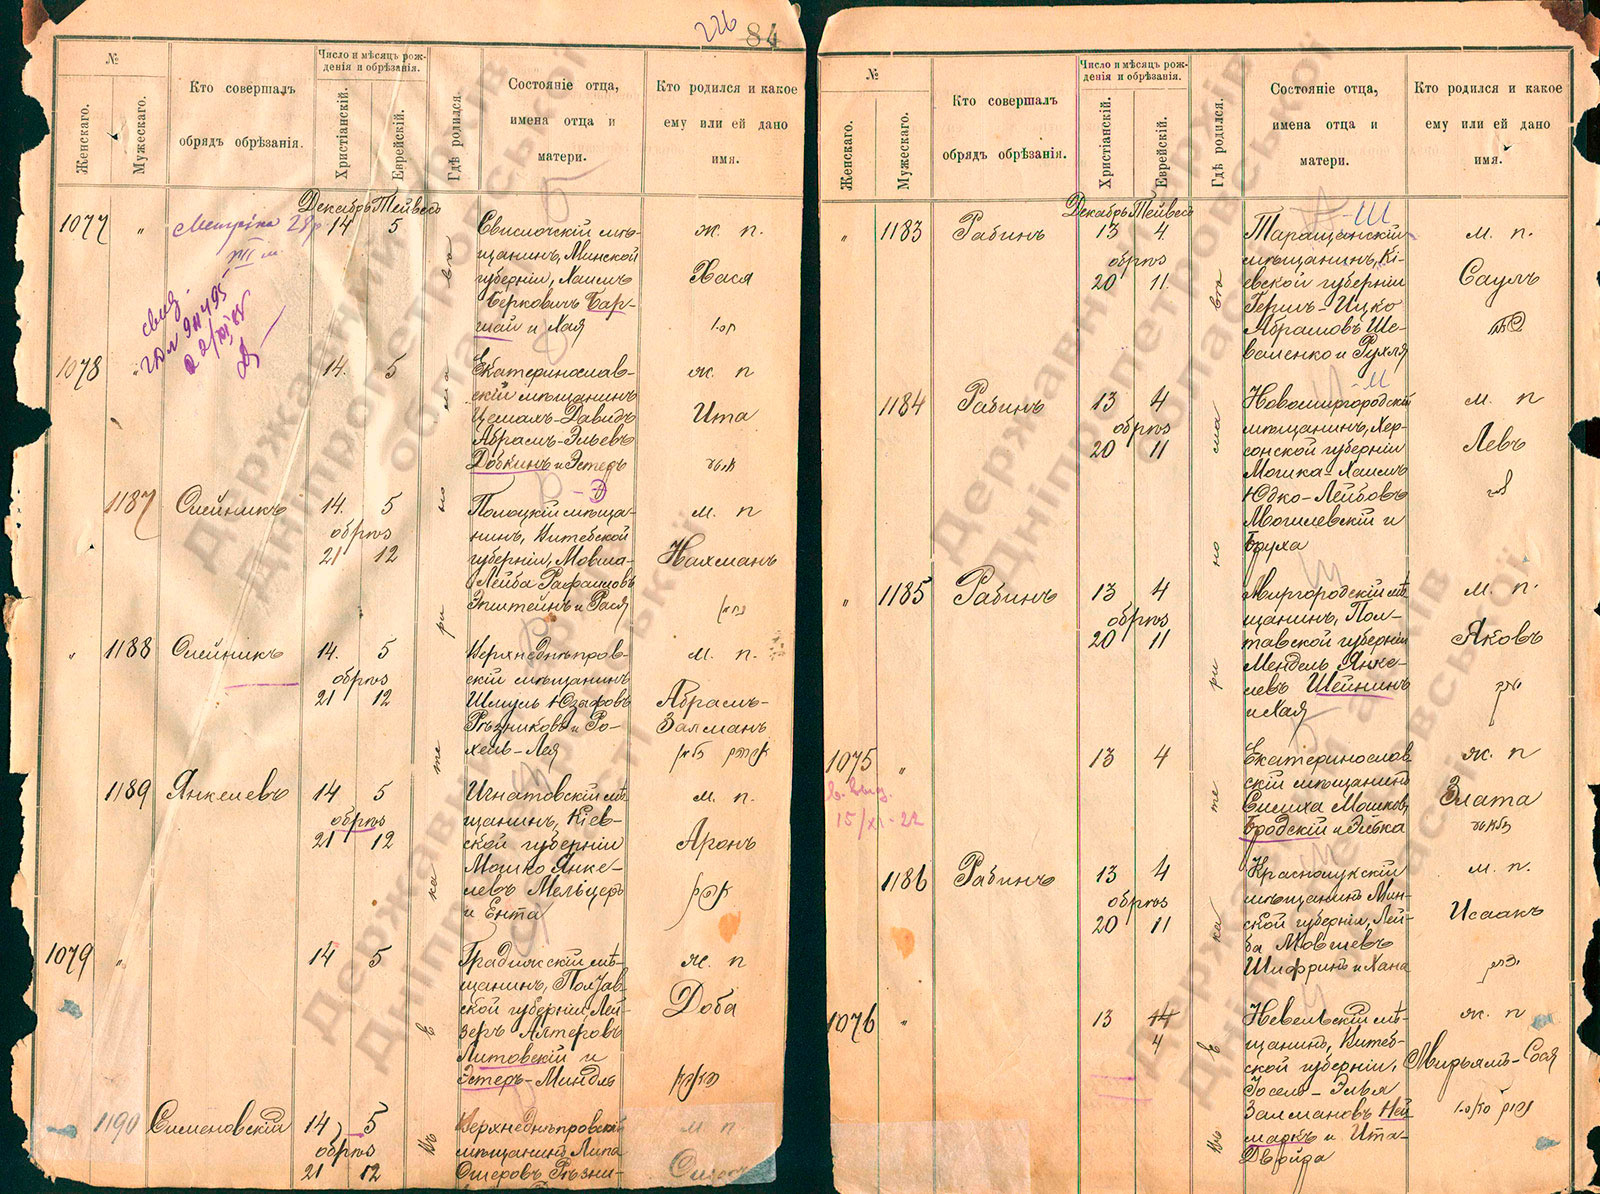 226 84
№
Женскаго.
Мужескаго.
Кто совершалъ
обрядъ обрѣзанія.
Число и мѣсяцъ рож-
денія и обрѣзанія.
Христіанскій.
Еврейскій.
Гдѣ родился.
Состояніе отца,
имена отца и
матери.
Кто родился и какое
ему или ей дано
имя.
Декабрь Тейвесъ
1077 " 14 5
Свислочскій мѣ-
щанинъ, Минской
губерніи, Хаимъ
Берковичъ Бар-
и Хая
ж. п.
Хася
1078 14. 5
Екатеринослав-
скій мѣщанинъ
Цемахъ-Давидъ
Абрамъ-Эльевъ
Добкинъ и Эстеръ
ж. п
Ита
1187 Олейникъ 14. 5
обрѣз
21 12
Полоцкій мѣща-
нинъ, Витебской
губерніи, Мовша-
Лейба Рафаиловъ
Эпштейнъ и Рася
м. п
Нахманъ
" 1188 Олейникъ 14. 5
обрѣз
21 12
Верхнеднѣпров-
скій мѣщанинъ
Шмуль Юзефовъ
Рѣзниковъ и Ро-
хель-Лея
м. п.
Абрамъ-
Залманъ
1189 Янкелевъ 14 5
обрѣз
21 12
Игнатовскій мѣ-
щанинъ, Кіев-
ской губерніи
Мошко Янке-
левъ Мельцеръ
и Ента
м. п.
Аронъ
1079 " 14 5
Градижскій мѣ-
щанинъ, Полтав-
ской губерніи, Лей-
зеръ Алтеровъ
Литовскій и
Эстеръ-Миндль
ж. п
Доба
1190 Сименовскій 14 5
обрѣз
21 12
Верхнеднѣпровскій
мѣщанинъ Липа
Ошеровъ Рѣзни-
м п
въ Екатеринославѣ
№
Женскаго.
Мужескаго.
Кто совершалъ
обрядъ обрѣзанія.
Число и мѣсяцъ рож-
денія и обрѣзанія.
Христіанскій.
Еврейскій.
Гдѣ родился.
Состояніе отца,
имена отца и
матери.
Кто родился и какое
ему или ей дано
имя.
Декабрь Тейвесъ
" 1183 Рабинъ 13 4.
обрѣз
20 11
Таращанскій
мѣщанинъ, Кі-
евской губерніи
Гершъ-Ицко
Абрамовъ Ше-
и Рухля
м. п.
Саулъ
1184 Рабинъ 13 4
обрѣз
20 11
Новомиргородскій
мѣщанинъ, Хер-
сонской губерніи
Мошка-Хаимъ
Юдко-Лейбовъ
Могилевскій и
Бруха
м. п
Левъ
" 1185 Рабинъ 13 4
обрѣз
20 11
Миргородскій мѣ-
щанинъ, Пол-
тавской губерніи
Мендель Янке-
левъ Шейнинъ
и Хая
м. п.
Яковъ
1075 " 13 4
15/XI-22
Екатеринослав-
скій мѣщанинъ
Симха Мошковъ
Бродскій и Элька
ж. п
Злата
1186 Рабинъ 13 4
обрѣз
20 11
Краснолукскій
мѣщанинъ Мин-
ской губерніи, Лей-
ба Мовшевъ
Шифринъ и Хана
м. п.
Исаакъ
1076 " 13 14
4
Невельскій мѣ-
щанинъ, Витеб-
ской губерніи,
Іосель-Элья
Залмановъ Ней-
маркъ и Ита-
Двойра
ж. п
Мирьямъ-Сося
въ Екатеринославѣ